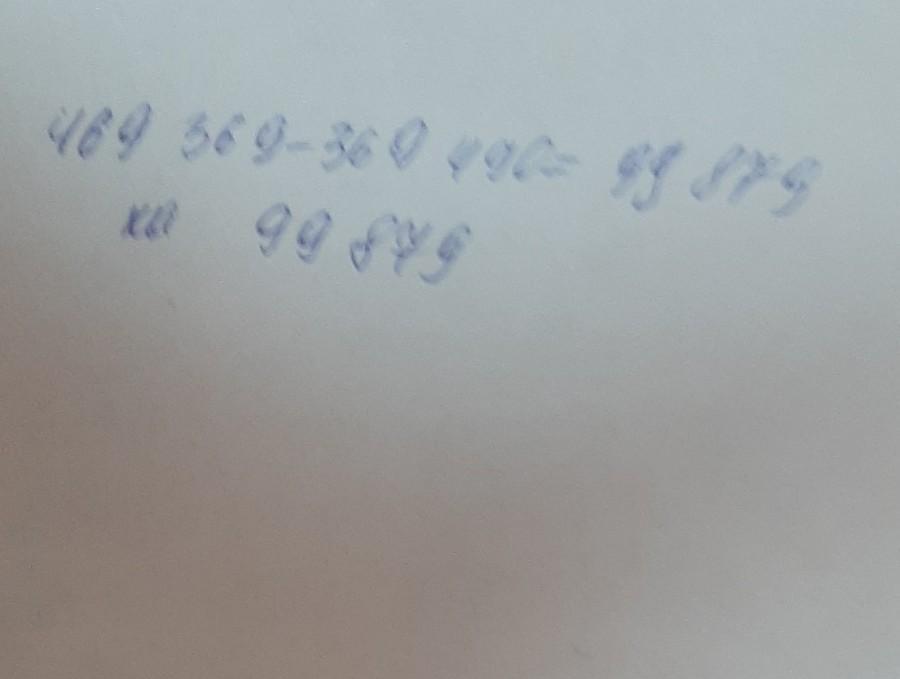 469 369-369 496= 99 879
ха 99 879